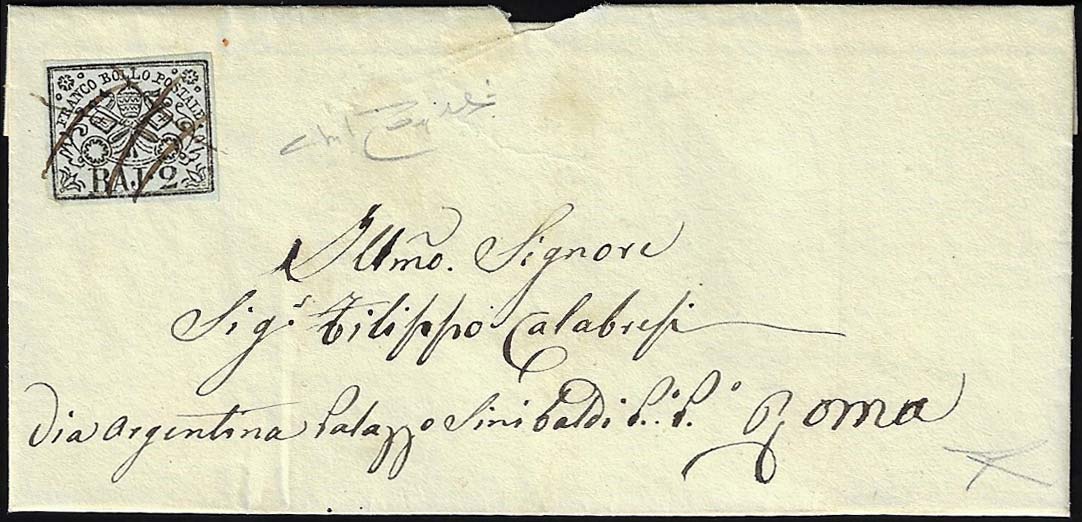 FRANCO BOLLO POSTALE
BAJ. 2
Illmo. Signore
Sigr Filippo Calabresi
Via Argentina Palazzo Sinibaldi P.o P.o Roma